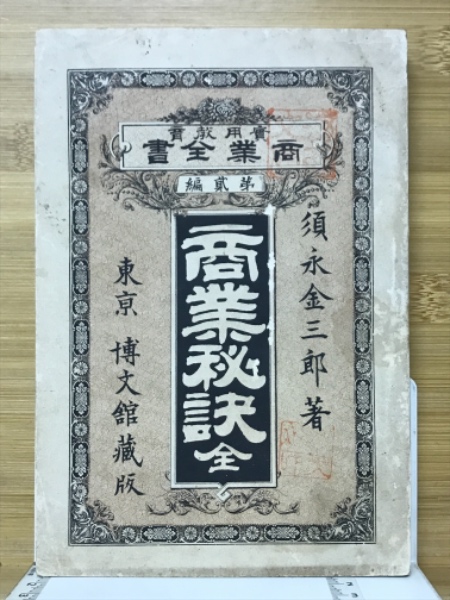 實用教育
商業全書
第貳編
須永金三郎著
商業秘訣全
東亰 博文館藏版